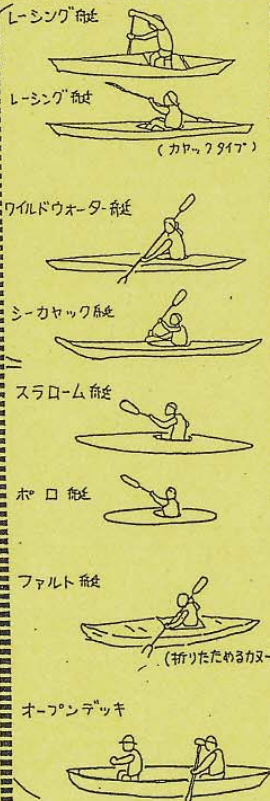 レーシング艇
レーシング艇
(カヤックタイプ)
ワイルドウォーター艇
シーカヤック艇
スラローム艇
ポロ艇
ファルト艇
(折りたためるカヌー
オープンデッキ